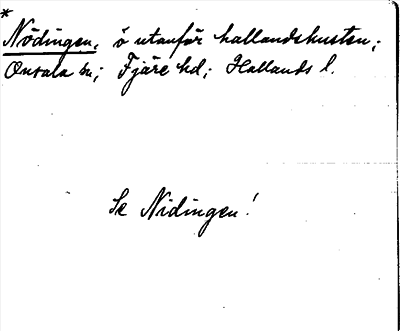 *
Nödingen, ö utanför hallandskusten;
Onsala sn; Fjäre hd; Hallands l.
Se Nidingen!